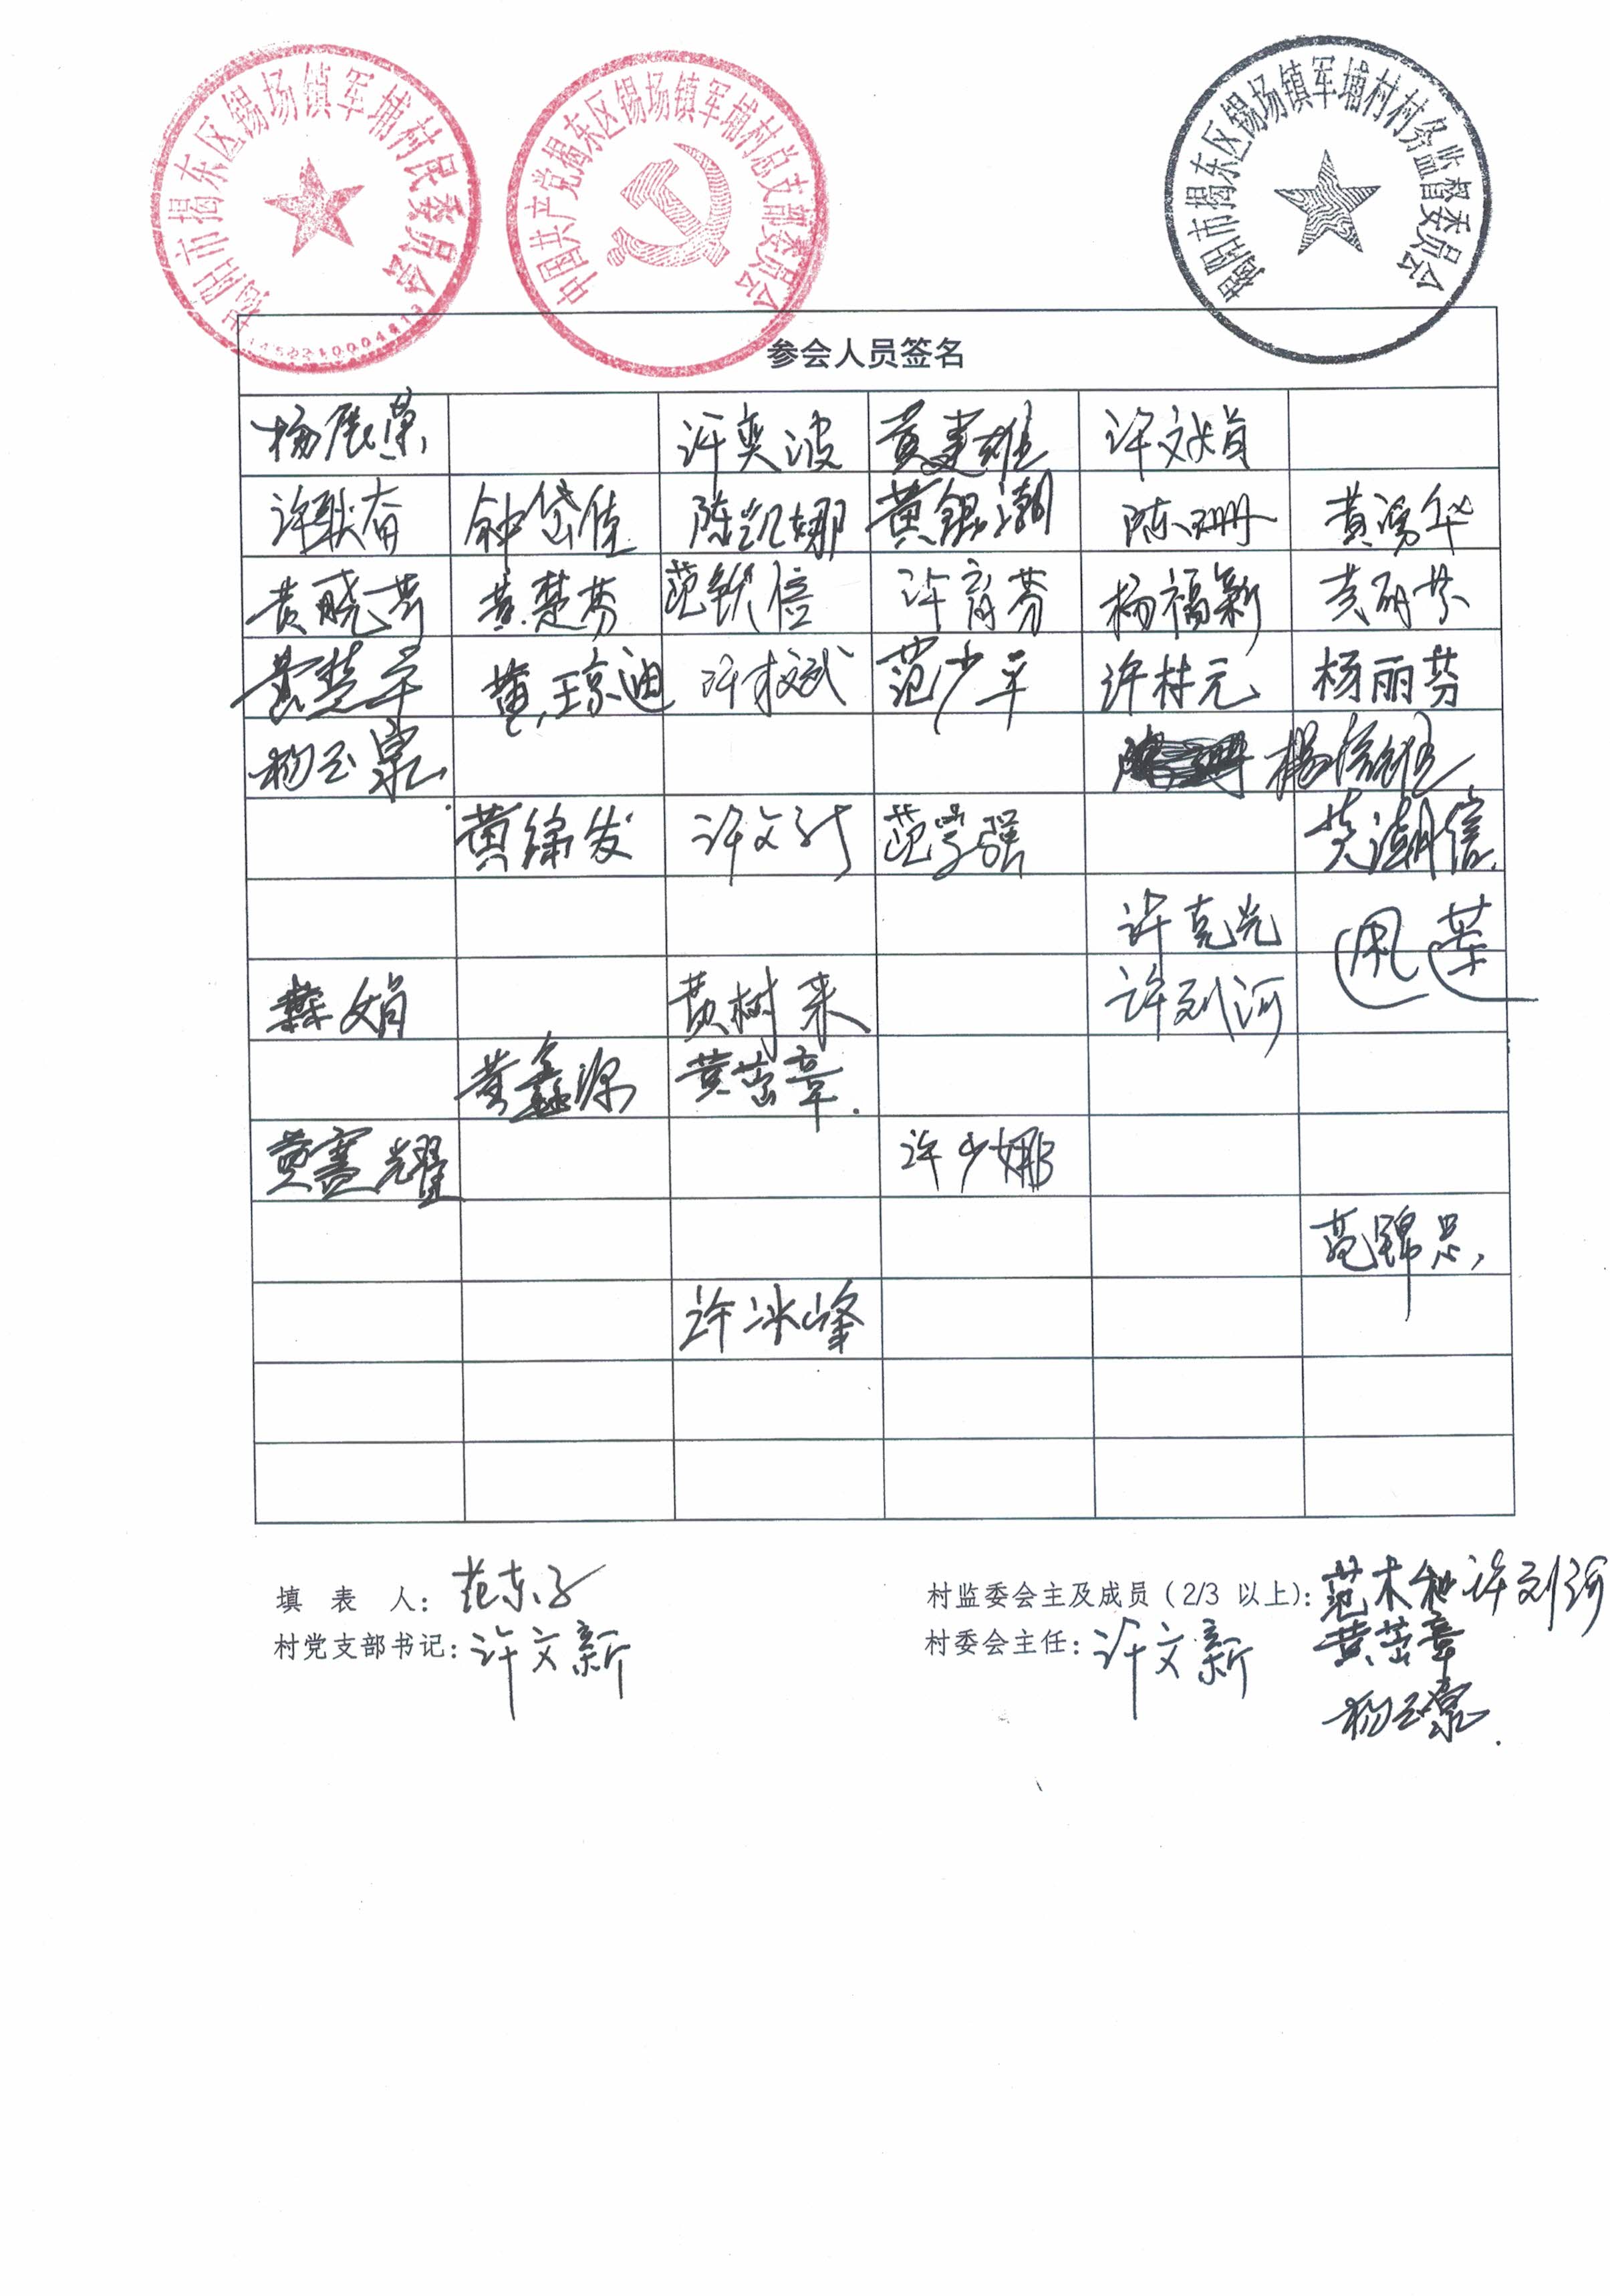 揭阳市揭东区锡场镇军埔村民委员会
中国共产党揭东区锡场镇军埔村总支部委员会
揭阳市揭东区锡场镇军埔村村务监督委员会
参会人员签名
杨展荣 许奕波 黄建雄 许文娟
许耿奋 钟岱佳 陈凯娜 黄锟潮 陈珊珊 黄勇华
黄晓芬 黄楚芬 范铁信 许育芬 杨福新 黄丽芬
黄楚平 黄琼迪 许木斌 范少平 许林元 杨丽芬
杨玉泉
黄绵发 范学强 黄潮信
许克光
黄树来 许列河
黄鑫源 黄岱章
许少娜
范锦忠
许冰峰
填 表 人： 村监委会主及成员（2/3 以上）： 范木和 许列河
村党支部书记：许文新 村委会主任：许文新 黄岱章
杨玉泉